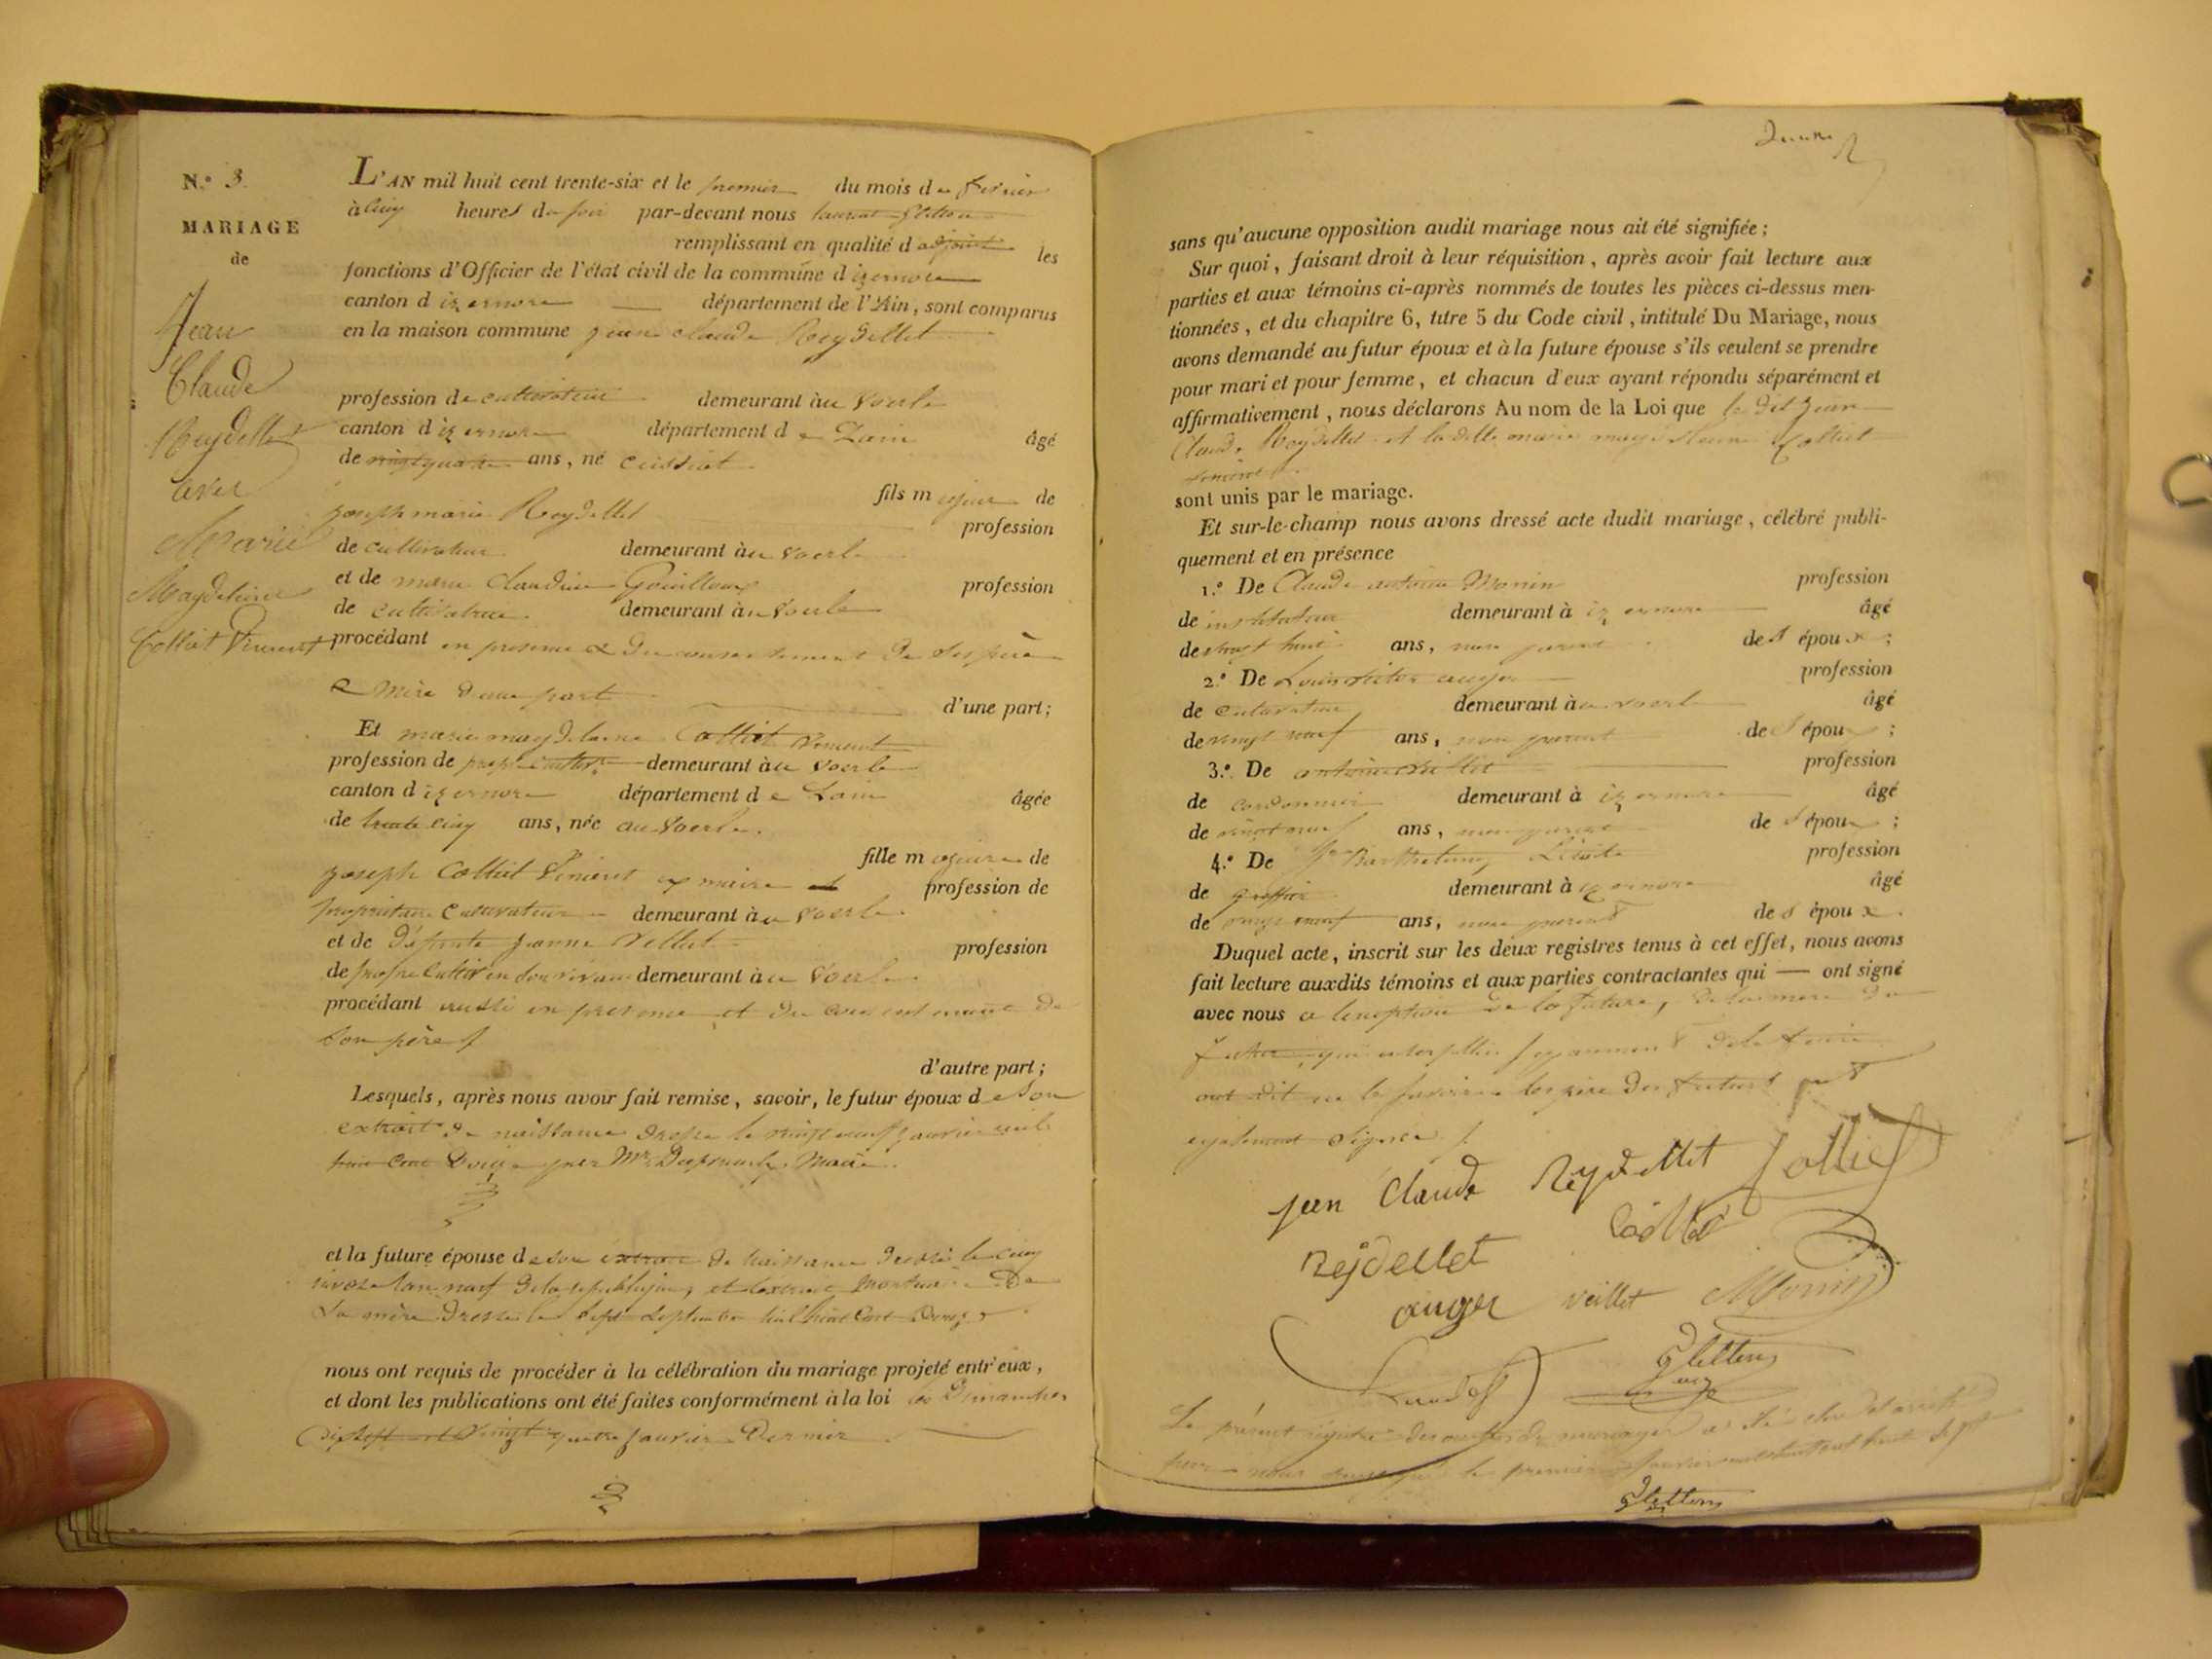 N.º 3.
MARIAGE
de
Jean
Claude
Reydellet
avec
Marie
Magdeleine
Colliat Vincent
L'AN mil huit cent trente-six et le premier du mois de fevrier
à cinq heures du soir par-devant nous laurent
remplissant en qualité d adjoint les
fonctions d'Officier de l'état civil de la commune d izernore
canton d izernore département de l'Ain, sont comparus
en la maison commune jean claude Reydellet
profession de cultivateur demeurant au Voerle
canton d izernore département de Lain âgé
de vingt quatre ans, né ceissiat
fils majeur de
joseph marie Reydellet profession
de cultivateur demeurant au voerle
et de marie Claudine Gouilloux profession
de cultivatrice demeurant au Voerle
procédant en presence & du consentement de ses père
& mère d'une part
d'une part;
Et marie magdelaine Colliat
profession de demeurant au Voerle
canton d izernore département de Lain âgée
de trente cinq ans, née au Voerle.
fille majeure de
joseph Colliat ex maire profession de
propriétaire Cultivateur demeurant au Voerle
et de défunte jeanne Vellet profession
de en son vivant demeurant au Voerle
procédant aussi en presence et du consentement de
son père
d'autre part;
Lesquels, après nous avoir fait remise, savoir, le futur époux de son
extrait de naissance dressé le vingt neuf janvier mil
huit cent douze par Mr. Maire.
et la future épouse de son extrait de naissance dressé le cinq
nivose lan neuf de la republique, et lextrait mortuaire de
sa mère dressé le sept septembre mil huit cent douze
nous ont requis de procéder à la célébration du mariage projeté entr'eux,
et dont les publications ont été faites conformément à la loi les Dimanches
dix sept et vingt quatre janvier dernier
sans qu'aucune opposition audit mariage nous ait été signifiée;
Sur quoi, faisant droit à leur réquisition, après avoir fait lecture aux
parties et aux témoins ci-après nommés de toutes les pièces ci-dessus men-
tionnées, et du chapitre 6, titre 5 du Code civil, intitulé Du Mariage, nous
avons demandé au futur époux et à la future épouse s'ils veulent se prendre
pour mari et pour femme, et chacun d'eux ayant répondu séparément et
affirmativement, nous déclarons Au nom de la Loi que le dit jean
Claude Reydellet et la dite marie magdeleine Colliat
sont unis par le mariage.
Et sur-le-champ nous avons dressé acte dudit mariage, célébré publi-
quement et en présence
1.º De Claude antoine Monin profession
de instituteur demeurant à izernore âgé
de vingt huit ans, non parent des époux;
2.º De Louis victor auger profession
de cultivateur demeurant au voerle âgé
de vingt neuf ans, non parent des époux;
3.º De antoine veillet profession
de cordonnier demeurant à izernore âgé
de vingt neuf ans, non parent des époux;
4.º De Barthelemy profession
de greffier demeurant à izernore âgé
de ans, non parent des époux.
Duquel acte, inscrit sur les deux registres tenus à cet effet, nous avons
fait lecture auxdits témoins et aux parties contractantes qui — ont signé
avec nous a lexeption de la future, de la mere du
futur, qui interpellées separement de le faire
ont dit ne le savoir les père des futurs ont
egalement signer
jean Claude Reydellet
Rejdellet
auger veillet Monin
Le présent registre des actes de mariages a été clos et arrêté
par nous le premier janvier mil huit cent trente sept